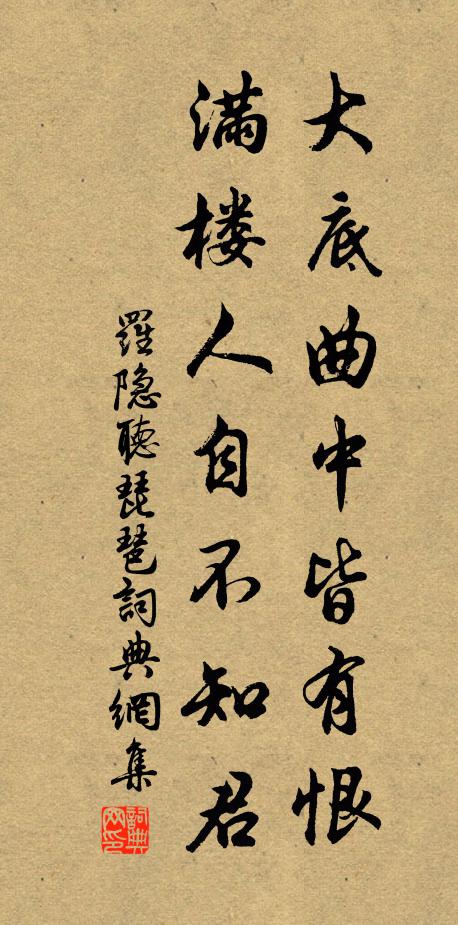 大底曲中皆有恨
满楼人自不知君
羅隐聽琵琶詞典網集
詞典網印